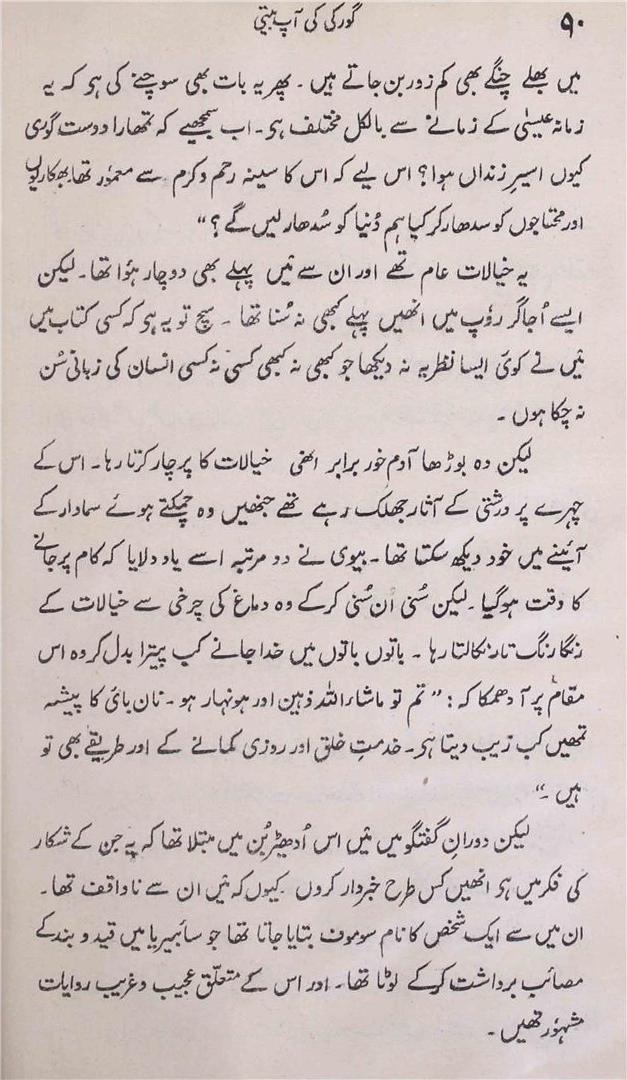 ۹۰
گورکی کی آپ بیتی
میں بھلے چنگے بھی کم زور بن جاتے ہیں ۔ پھر یہ بات بھی سوچنے کی ہر کہ یہ
زمانہ عیسیٰ کے زمانے سے بالکل مختلف ہر ۔ اب سمجھیے کہ تمھارا دوست گوری
کیوں اسیرِ زنداں ہوا ؟ اس لیے کہ اس کا سینہ رحم و کرم سے معمور تھا۔ بھکاریوں
اور محتاجوں کو سدھار کر کیا ہم دُنیا کو سُدھار لیں گے ؟ “
یہ خیالات عام تھے اور ان سے مَیں پہلے بھی دوچار ہؤا تھا ۔ لیکن
ایسے اُجاگر روٗپ میں انھیں پہلے کبھی نہ سُنا تھا ۔ سچ تو یہ ہر کہ کسی کتاب میں
مَیں نے کوئی ایسا نظریہ نہ دیکھا جو کبھی نہ کبھی کسی نہ کسی انسان کی زبانی سُن
نہ چکا ہوں ۔
لیکن وہ بوڑھا آدم خور برابر انھی خیالات کا پرچار کرتا رہا ۔ اس کے
چہرے پر درشتی کے آثار جھلک رہے تھے جنھیں وہ چمکتے ہوئے سماوار کے
آئینے میں خود دیکھ سکتا تھا ۔ بیوی نے دو مرتبہ اسے یاد دلایا کہ کام پر جانے
کا وقت ہوگیا ۔ لیکن سُنی اَن سُنی کرکے وہ دماغ کی چرخی سے خیالات کے
رنگا رنگ تار نکالتا رہا ۔ باتوں باتوں میں خدا جانے کب پیترا بدل کر وہ اس
مقام پر آ دھمکا کہ : ” تم تو ماشاء اللہ ذہین اور ہونہار ہو ۔ نان بائی کا پیشہ
تمھیں کب زیب دیتا ہر ۔ خدمتِ خلق اور روزی کمانے کے اور طریقے بھی تو
ہیں ۔ “
لیکن دورانِ گفتگو میں مَیں اس اُدھیڑ بُن میں مبتلا تھا کہ یہ جن کے شکار
کی فکر میں ہر انھیں کس طرح خبردار کروں ۔ کیوں کہ مَیں ان سے ناواقف تھا ۔
ان میں سے ایک شخص کا نام سوموف بتایا جاتا تھا جو سائبیریا میں قید و بند کے
مصائب برداشت کرکے لوٹا تھا ۔ اور اس کے متعلّق عجیب و غریب روایات
مشہوٗر تھیں ۔